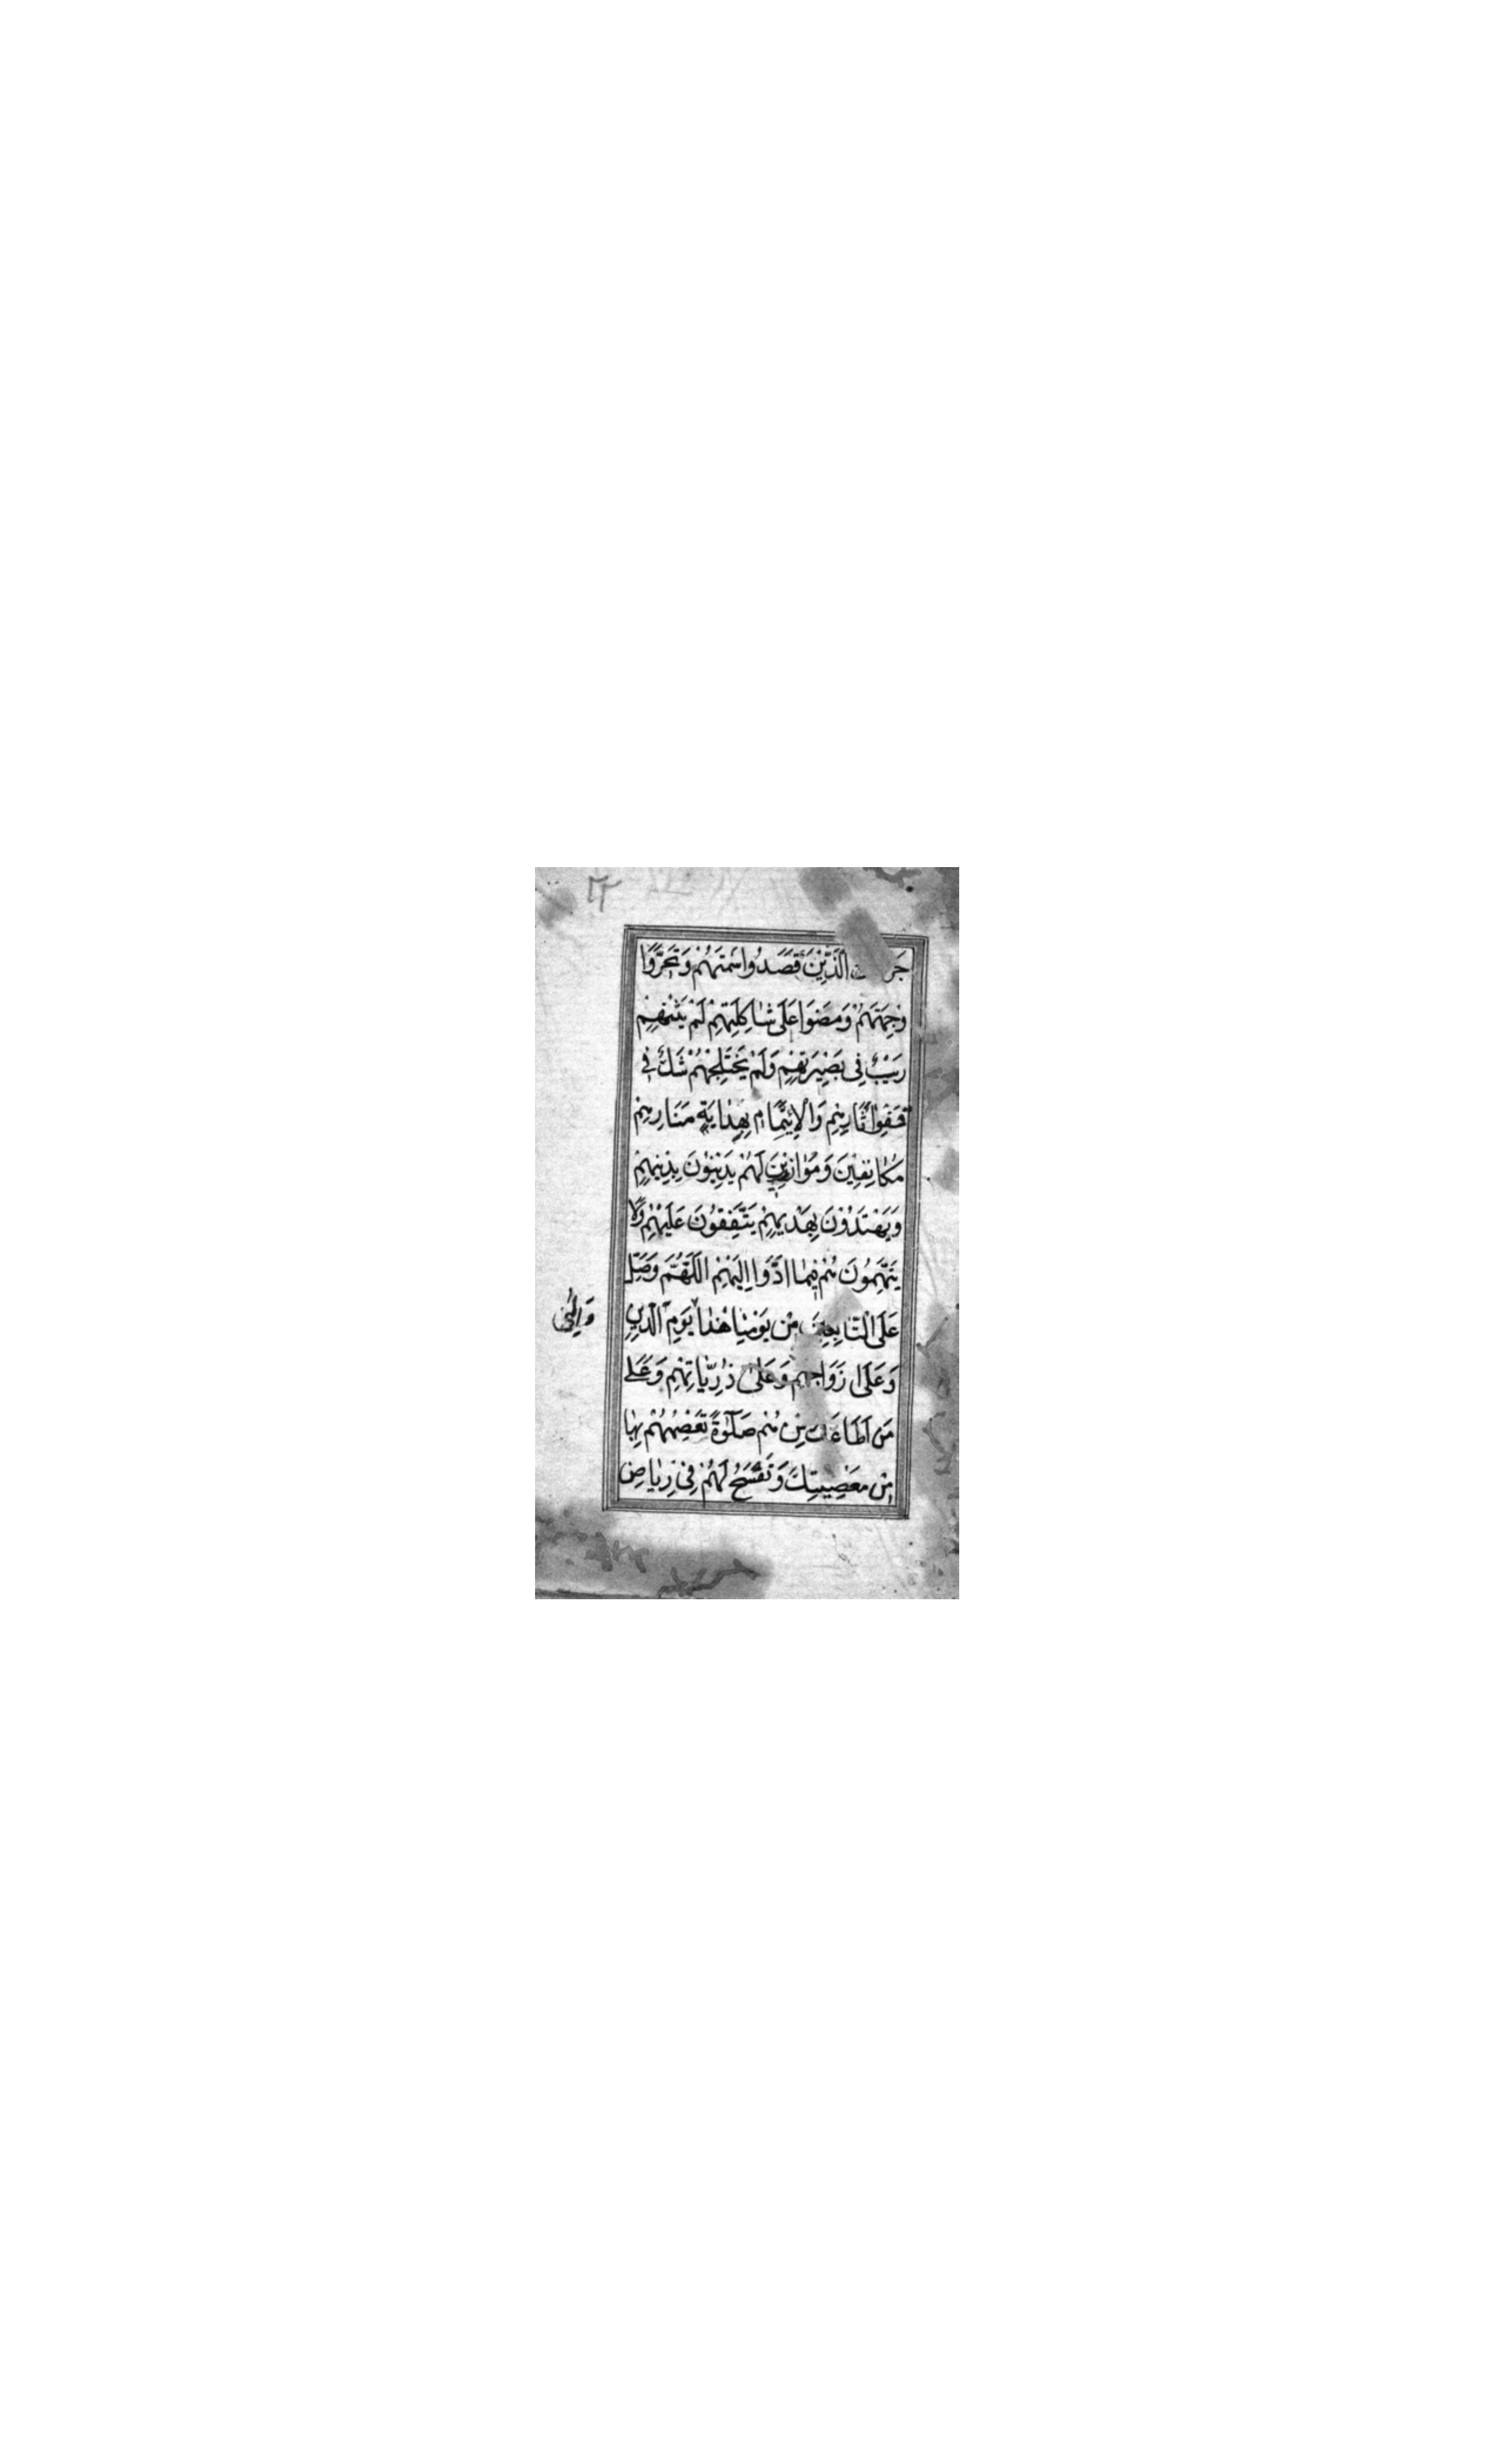 الَّذِيْنَ قَصَدُوا سَمْتَهُمْ وَتَحَرَّوْا
وِجْهَتَهُمْ وَمَضَوْا عَلَى شَاكِلَتِهِمْ لَمْ يَثْنِهِمْ
رَيْبٌ فِي بَصِيْرَتِهِمْ وَلَمْ يَخْتَلِجْهُمْ شَكٌّ فِي
قَفْوِ اٰثَارِهِمْ وَالْاِئْتِمَامِ بِهِدَايَةِ مَنَارِهِمْ
مُكَانِفِيْنَ وَمُوَازِرِيْنَ لَهُمْ يَدِيْنُوْنَ بِدِيْنِهِمْ
وَيَهْتَدُوْنَ بِهَدْيِهِمْ يَتَّفِقُوْنَ عَلَيْهِمْ وَلَا
يَتَّهِمُوْنَهُمْ فِيْمَا اَدَّوْا اِلَيْهِمْ اَللّٰهُمَّ وَصَلِّ
عَلَى التَّابِعِيْنَ مِنْ يَوْمِنَا هٰذَا يَوْمِ الدِّيْنِ
وَعَلَى اَزْوَاجِهِمْ وَعَلٰى ذُرِّيَّاتِهِمْ وَعَلٰى
مَنْ اَطَاعَكَ مِنْهُمْ صَلٰوةً تَعْصِمُهُمْ بِهَا
مِنْ مَعْصِيَتِكَ وَتَفْسَحُ لَهُمْ فِيْ رِيَاضِ